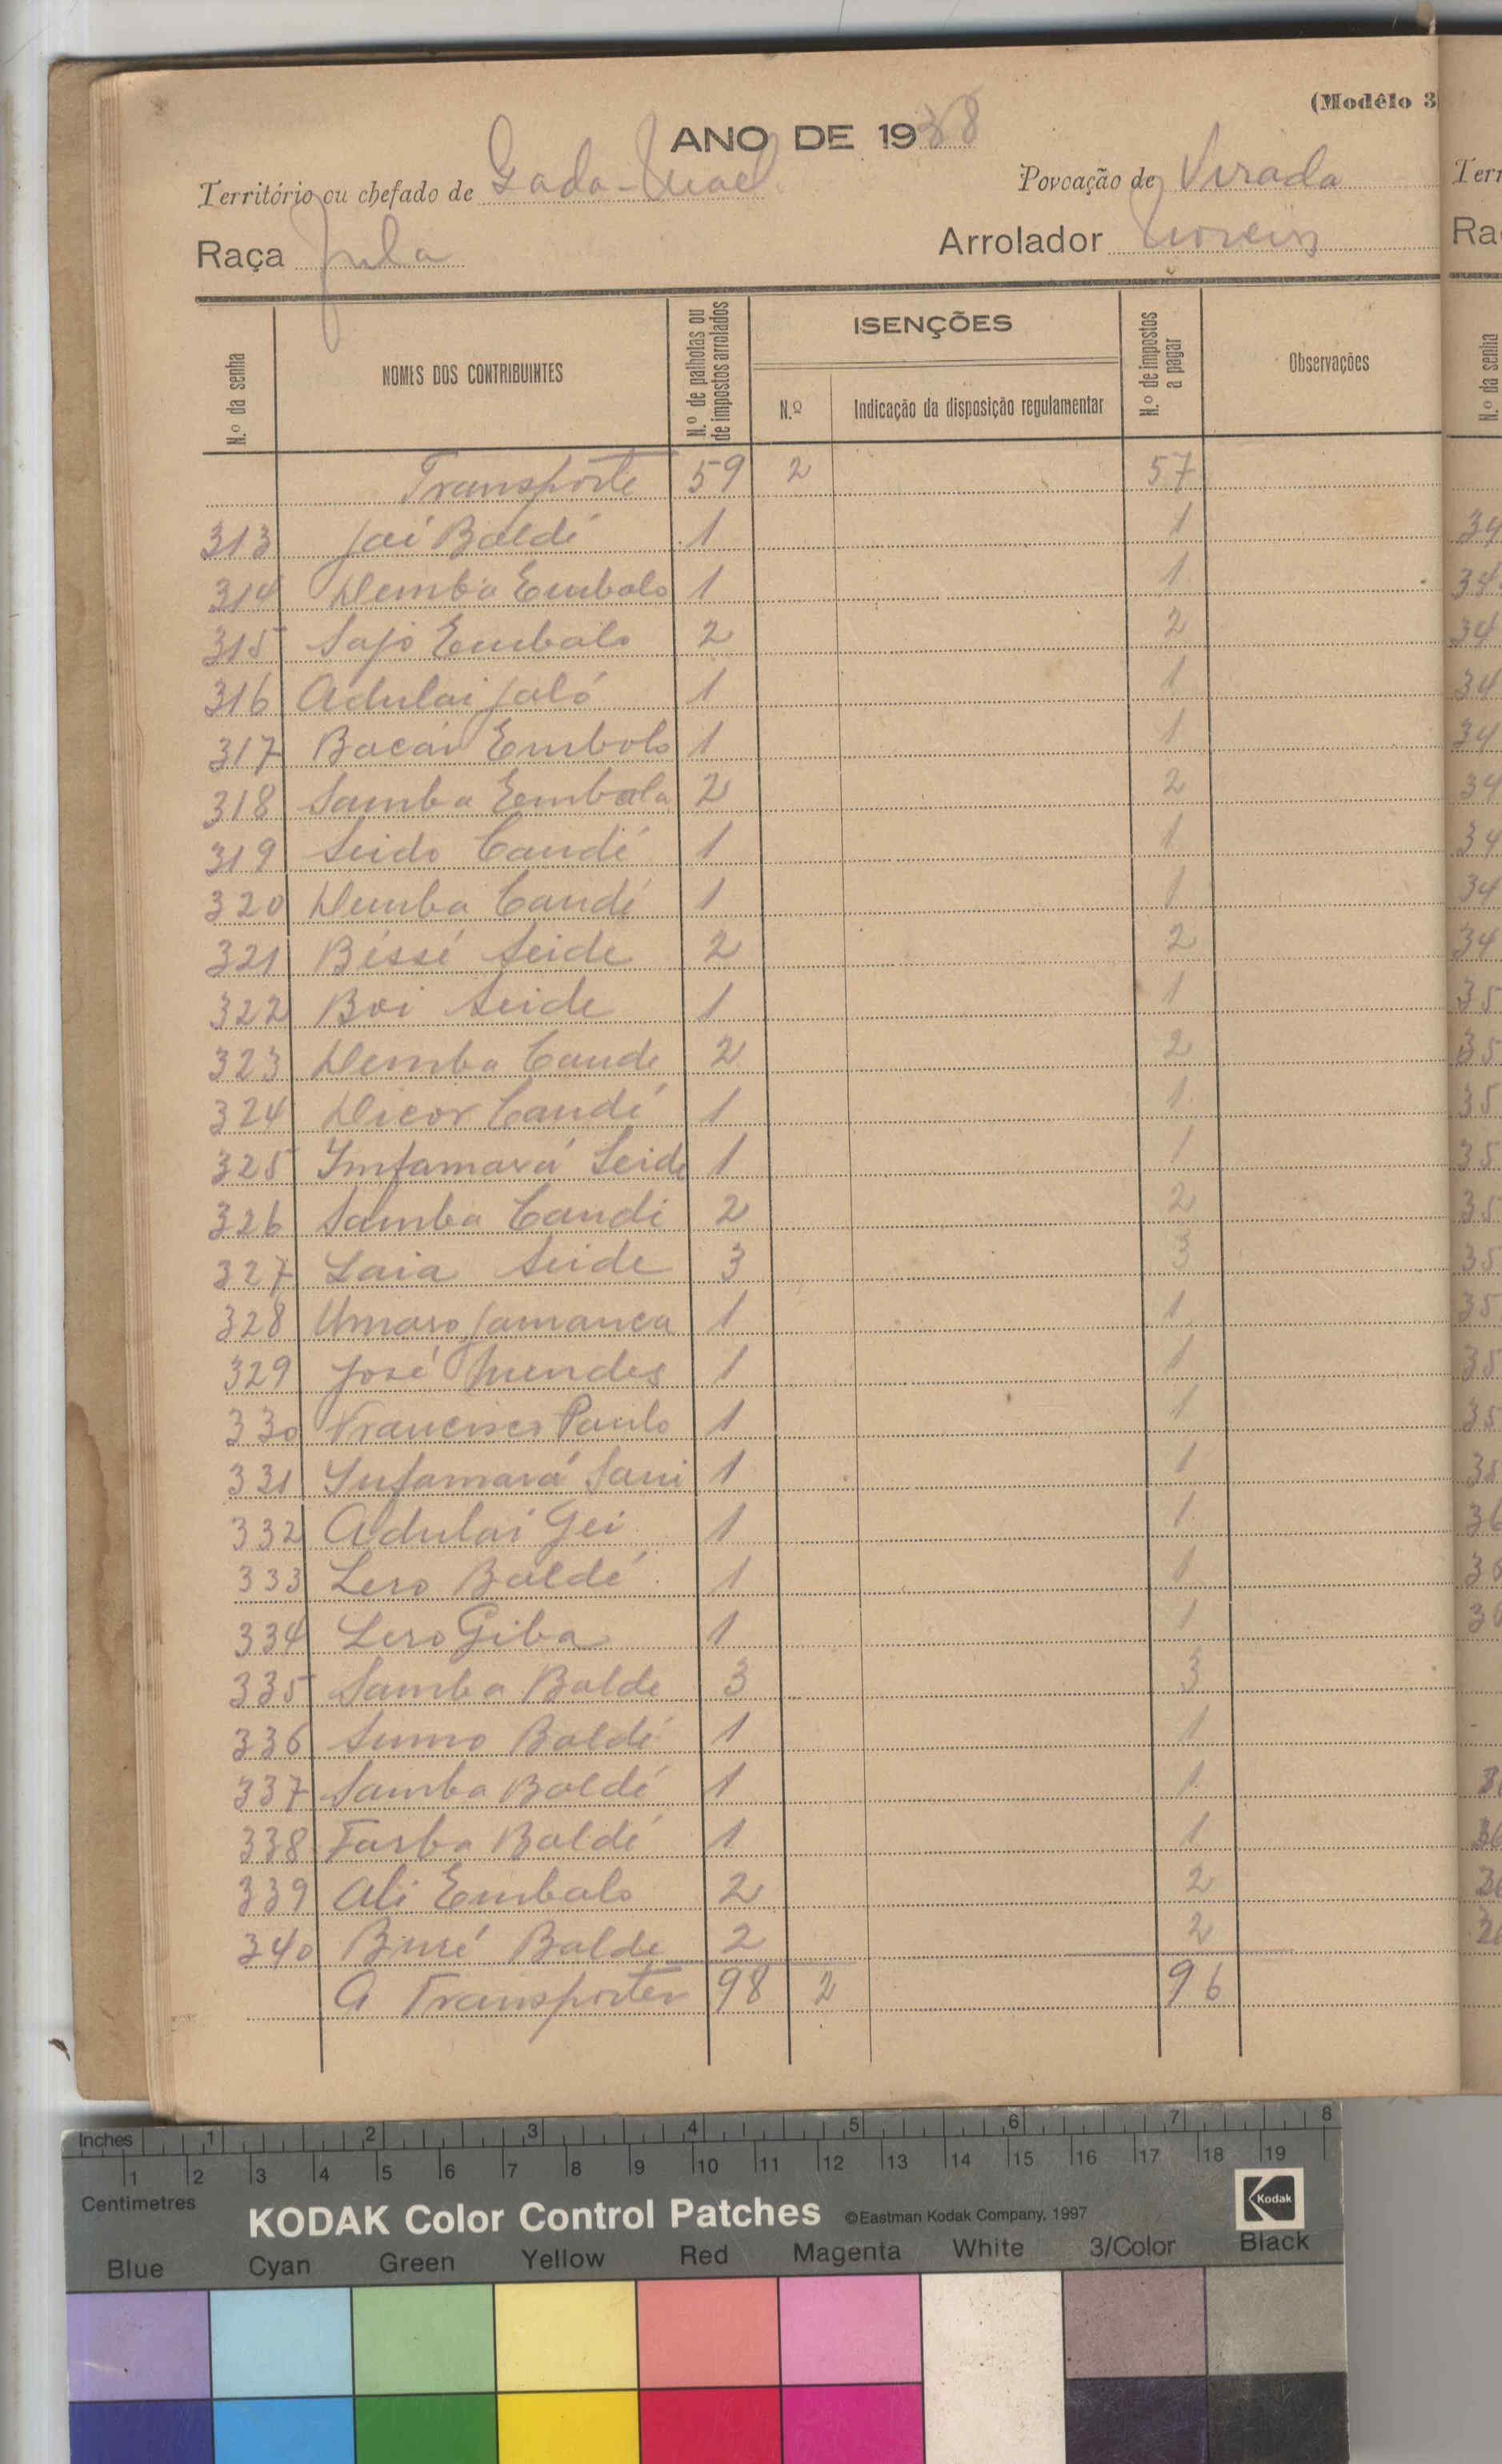 (Modêlo 3
ANO DE 1938
Território ou chefado de Gada-Mael Povoação de Virada
Raça Fula Arrolador
N.º da senha NOMES DOS CONTRIBUINTES N.º de palhotas ou de impostos arrolados ISENÇÕES N.º de impostos a pagar Observações
N.º Indicação da disposição regulamentar
Transporte 59 2 57
313 Jai Baldé 1 1
314 Demba Embalo 1 1
315 Sajo Embalo 2 2
316 Adulai Jaló 1 1
317 Bacar Embalo 1 1
318 Samba Eembala 2 2
319 Seido Candé 1 1
320 Demba Candé 1 1
321 Béssé Seide 2 2
322 Boi Seide 1 1
323 Demba Cande 2 2
324 Dicor Candé 1 1
325 Imfamará Seide 1 1
326 Samba Candi 2 2
327 Laia Seide 3 3
328 Umaro Jamanca 1 1
329 José Mendes 1 1
330 Francisco Paulo 1 1
331 Infamará Sani 1 1
332 Adulai Gei 1 1
333 Lero Baldé 1 1
334 Lero Giba 1 1
335 Samba Balde 3 3
336 Sumo Baldé 1 1
337 Samba Baldé 1 1
338 Farba Baldé 1 1
339 Ali Embalo 2 2
340 Buré Balde 2 2
A Transportar 98 2 96
Inches 1 2 3 4 5 6 7 8
Centimetres 1 2 3 4 5 6 7 8 9 10 11 12 13 14 15 16 17 18 19
KODAK Color Control Patches ©Eastman Kodak Company, 1997 Kodak
Blue Cyan Green Yellow Red Magenta White 3/Color Black